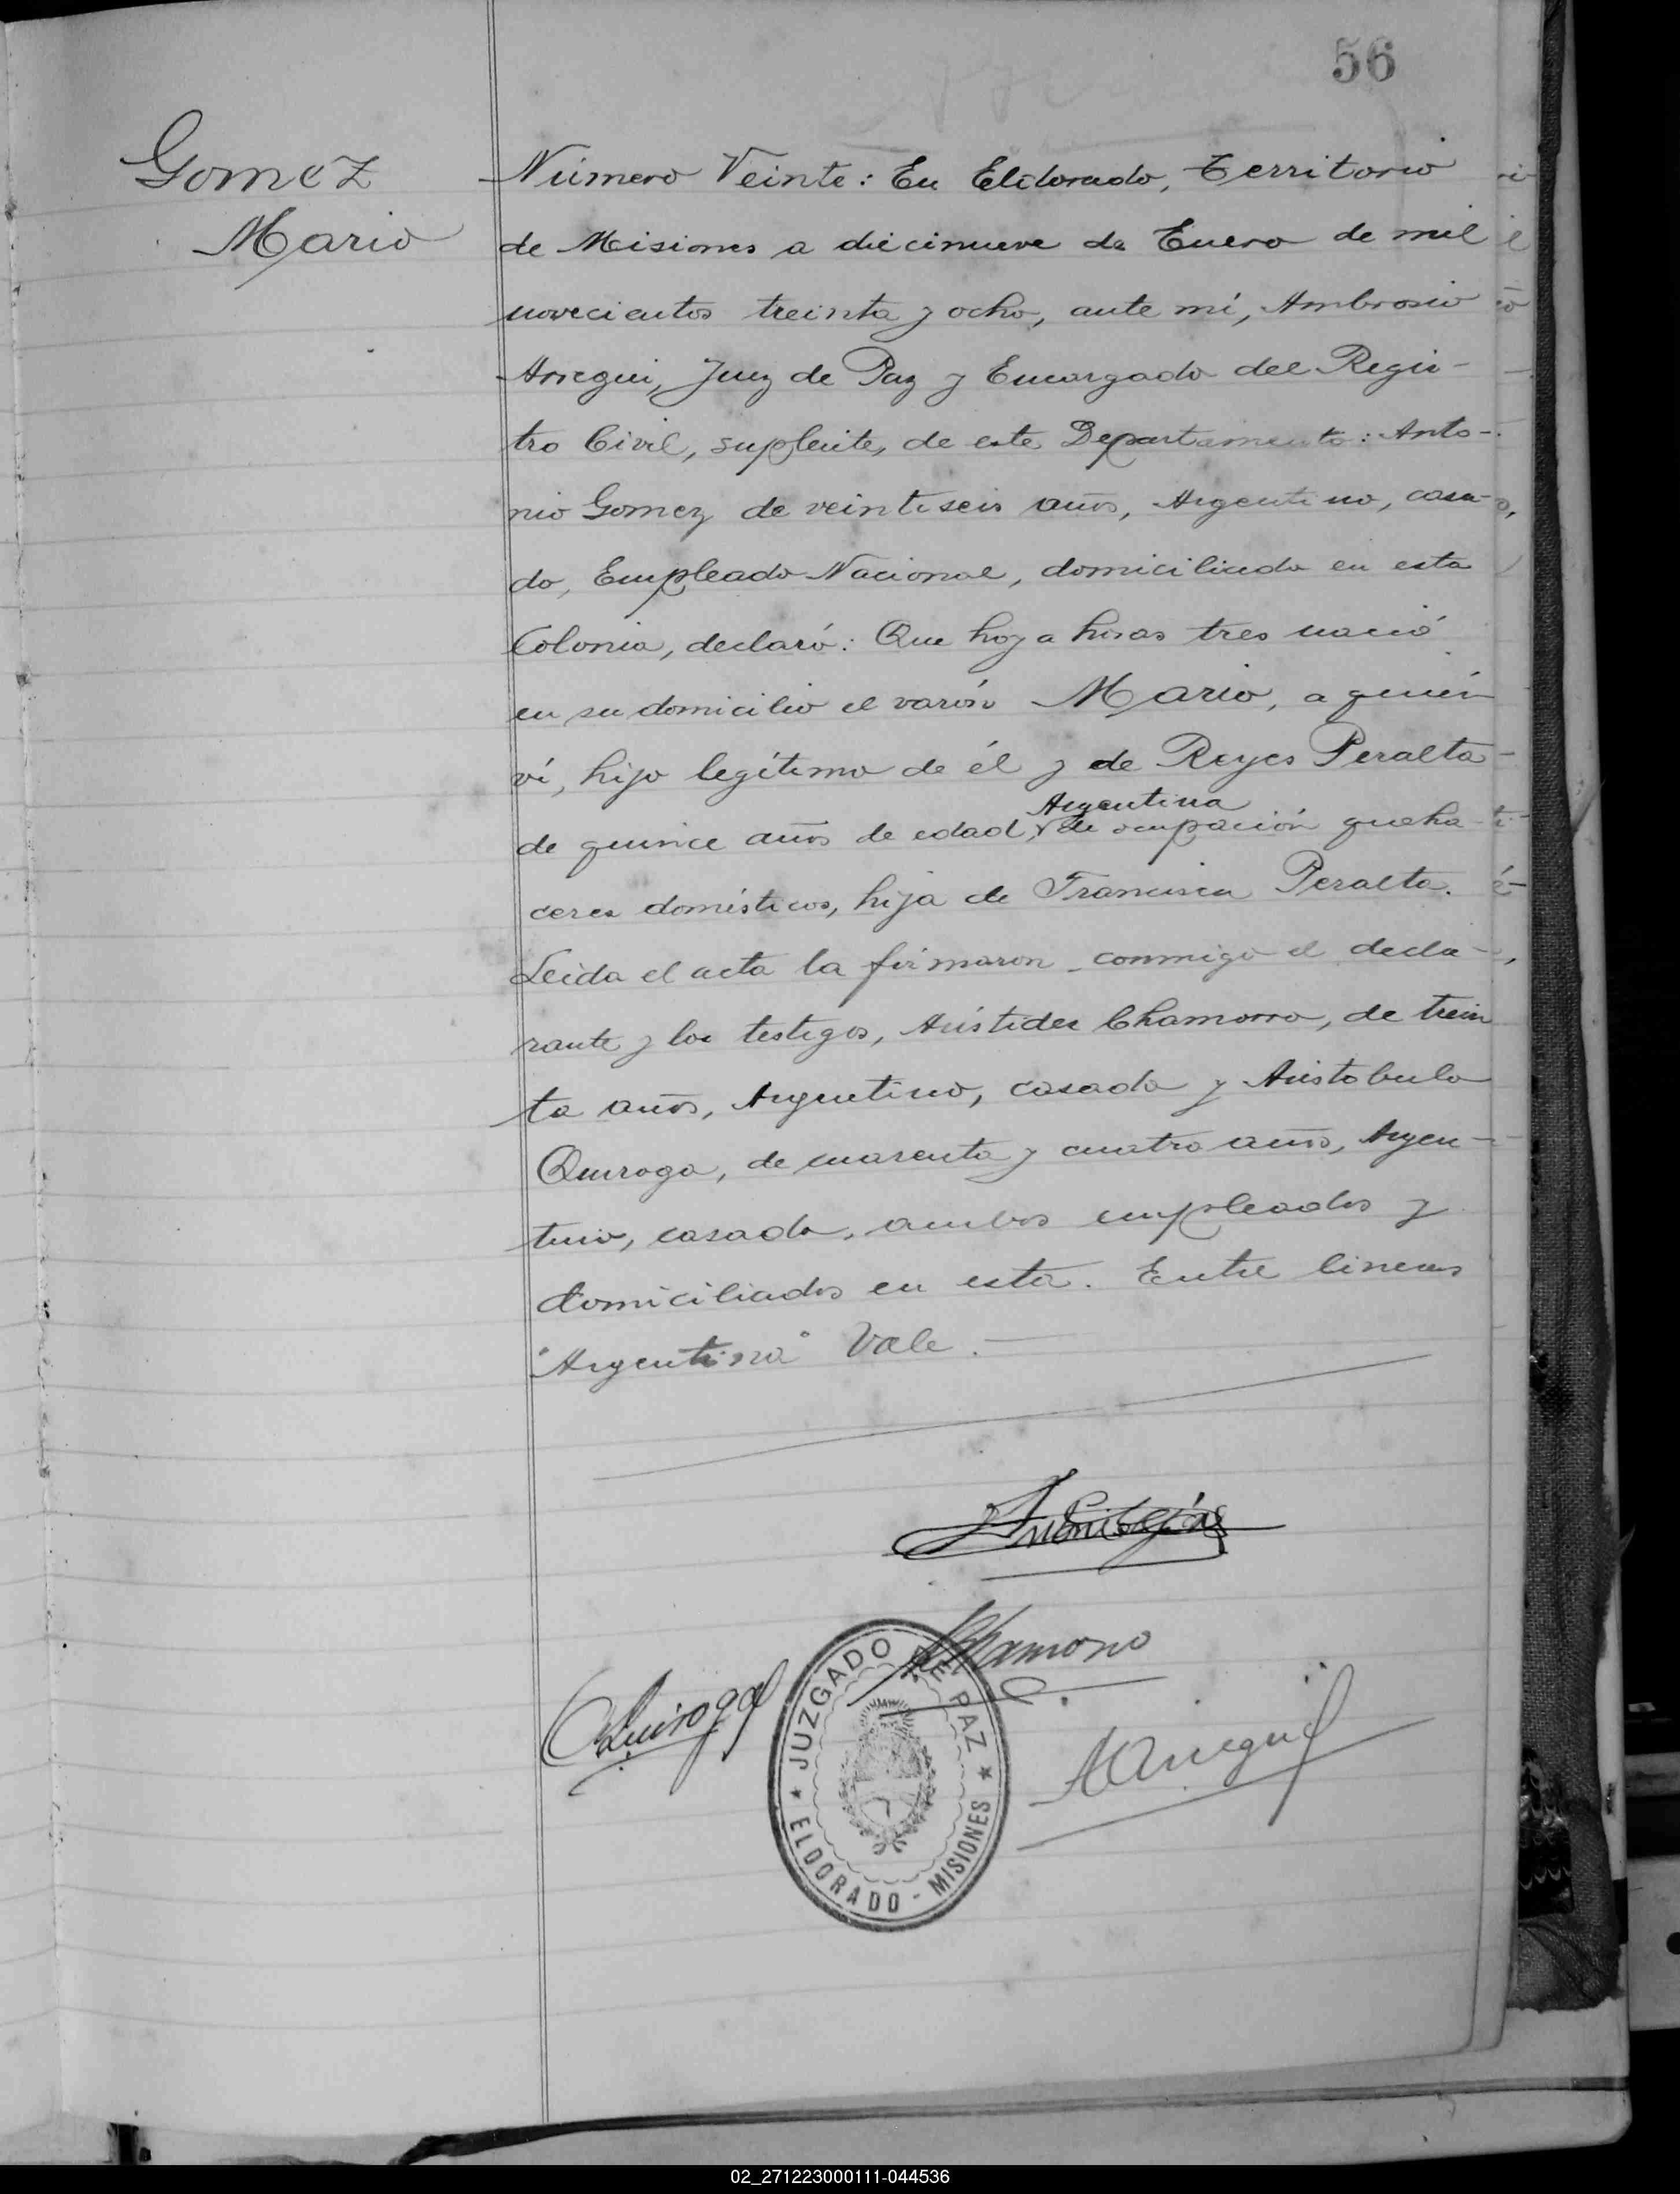 56
Gomez
Mario
Número Veinte: En Eldorado, Territorio
de Misiones a diecinueve de Enero de mil
novecientos treinta y ocho, ante mí, Ambrosio
Arregui, Juez de Paz y Encargado del Regis-
tro Civil, suplente, de este Departamento: Anto-
nio Gomez de veintiseis años, Argentino, casa-
do, Empleado Nacional, domiciliado en esta
Colonia, declaró: Que hoy a horas tres nació
en su domicilio el varón Mario, a quién
ví, hijo legítimo de él y de Reyes Peralta
Argentina
de quince años de edad, de ocupación queha-
ceres domésticos, hija de Francisca Peralta.
Leida el acta la firmaron conmigo el decla-
rante y los testigos, Arístides Chamorro, de trein
ta años, Argentino, casado y Aristobulo
Quiroga, de cuarenta y cuatro años, Argen-
tino, casado, ambos empleados y
domiciliados en esta. Entre lineas
"Argentina" Vale.
Chamorro
Quiroga
AArregui
JUZGADO DE PAZ
ELDORADO - MISIONES
02_271223000111-044536